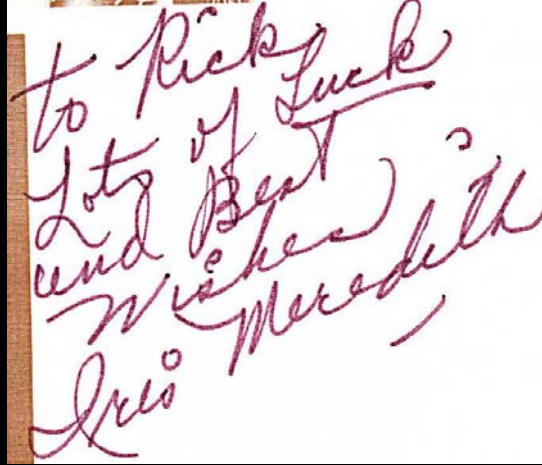 to Rick
Lots of Luck
and Best
Wishes
Iris Meredith